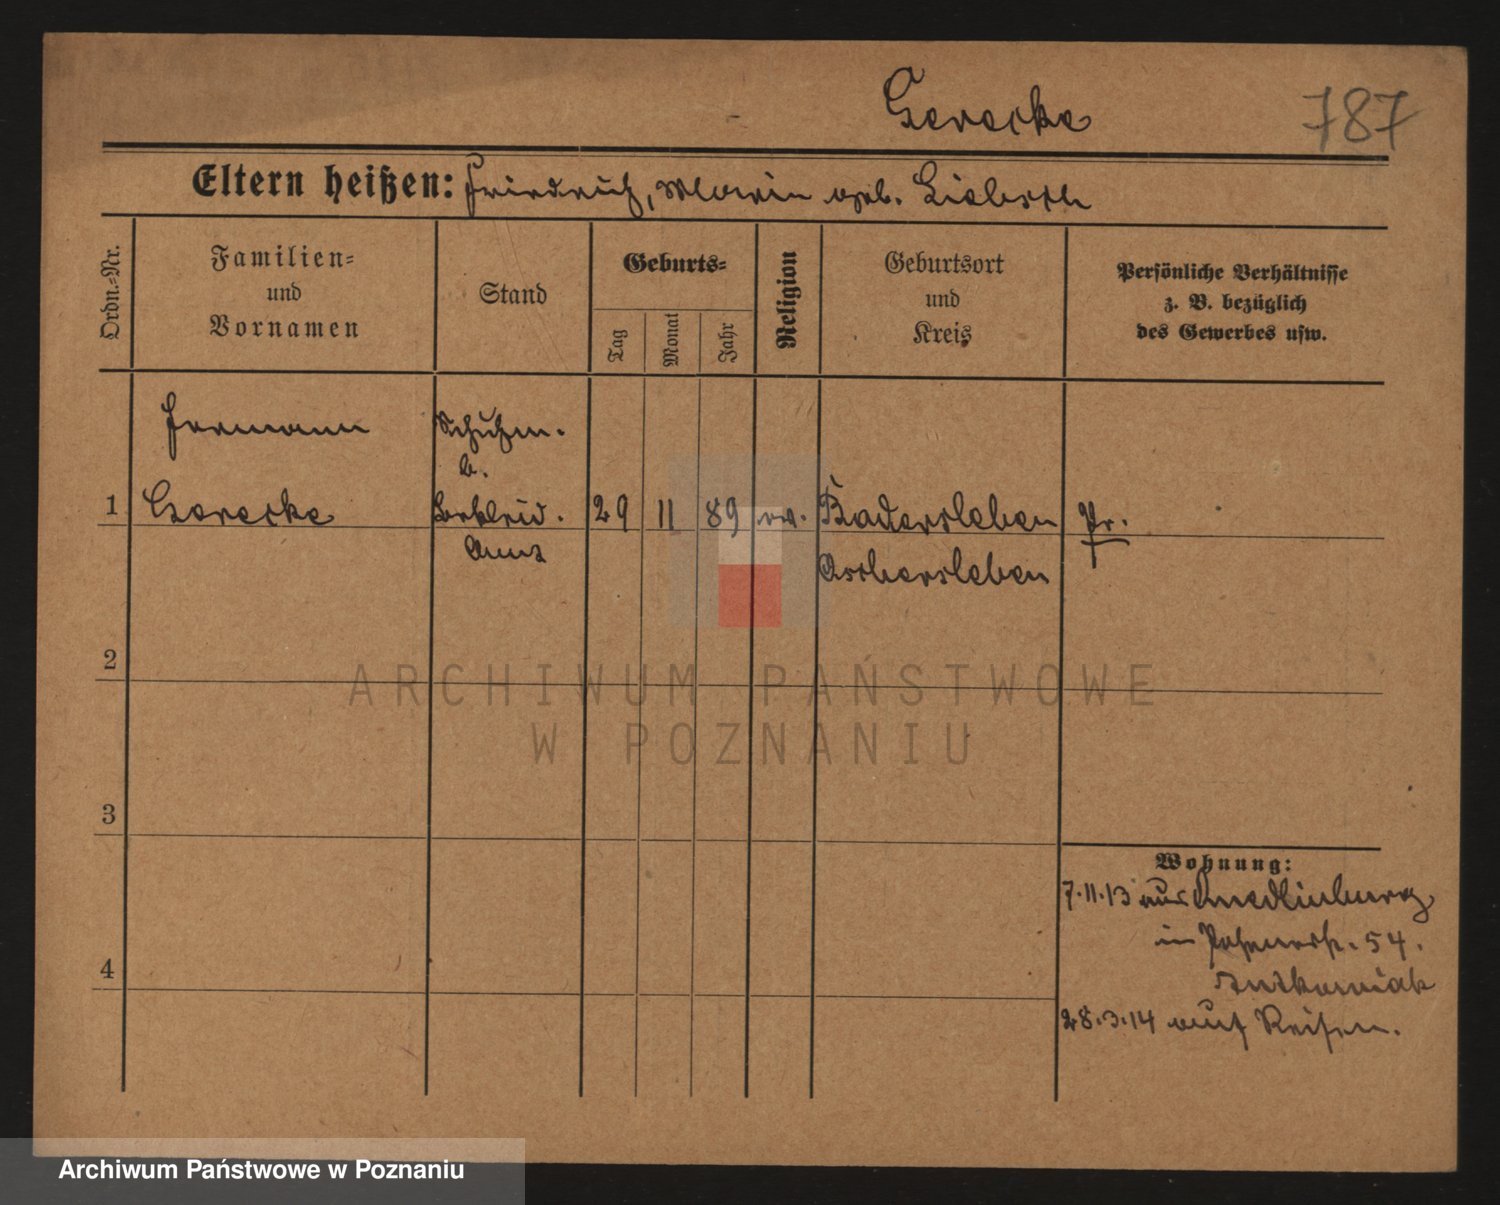 Gerecke
787
Eltern heißen: Friedrich, Marie geb. Liebsch
Ordn.=Nr.
Familien=
und
Vornamen
Stand
Geburts=
Tag
Monat
Jahr
Religion
Geburtsort
und
Kreis
Persönliche Verhältnisse
z. B. bezüglich
des Gewerbes usw.
Hermann
Schuhm.
b.
1 Gerecke Bekleid. 29 11 89 ev. Badersleben Pr.
Amt
Oschersleben
2
3
4
Wohnung:
7.11.13 aus Quedlinburg
in Posenerstr. 54.
28.3.14 auf Reisen.
ARCHIWUM PAŃSTWOWE
W POZNANIU
Archiwum Państwowe w Poznaniu